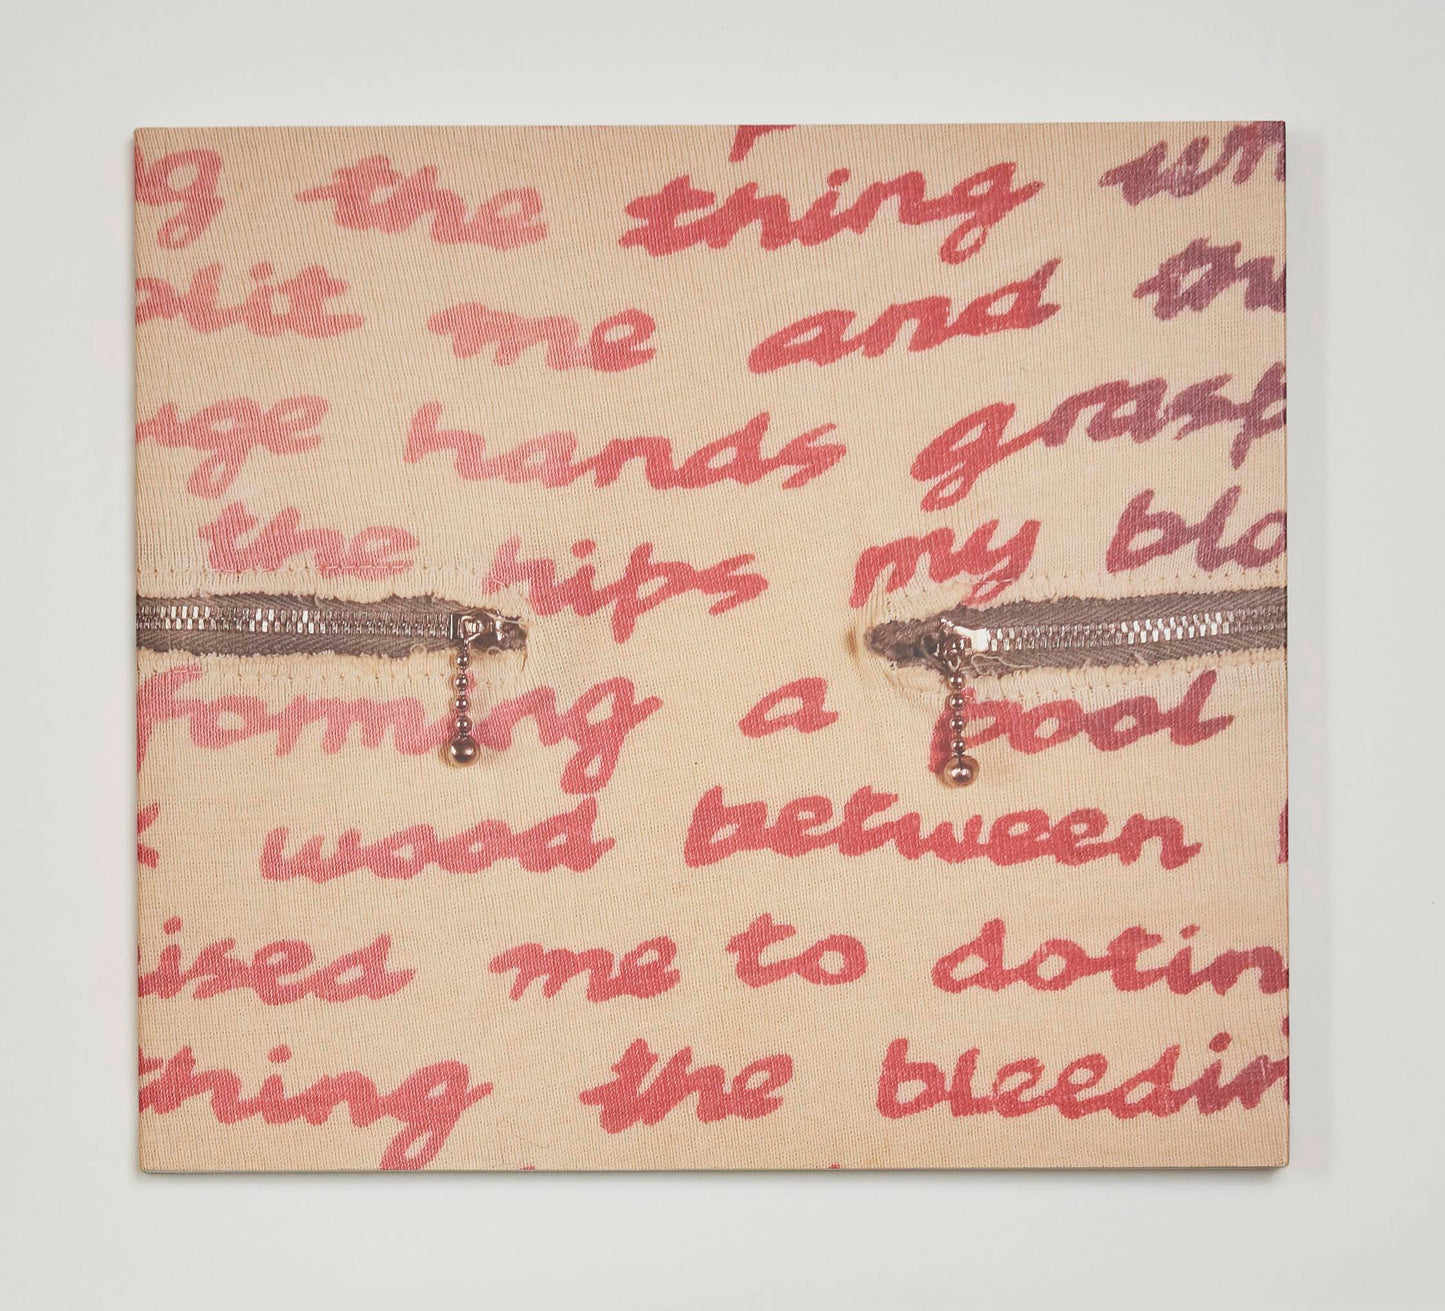 g the thing wh
lit me and th
uge hands grasp
the hips my blo
forming a pool
wood between
ised me to dotin
thing the bleedin